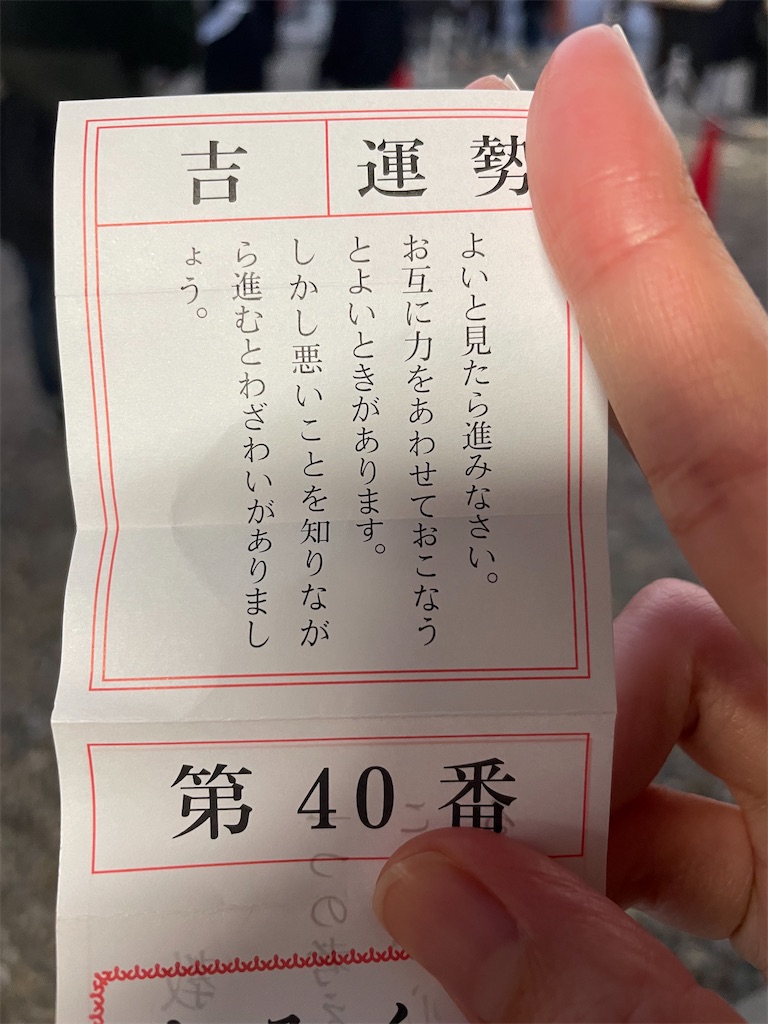 運勢
吉
よいと見たら進みなさい。
お互に力をあわせておこなう
とよいときがあります。
しかし悪いことを知りなが
ら進むとわざわいがありまし
ょう。
第40番